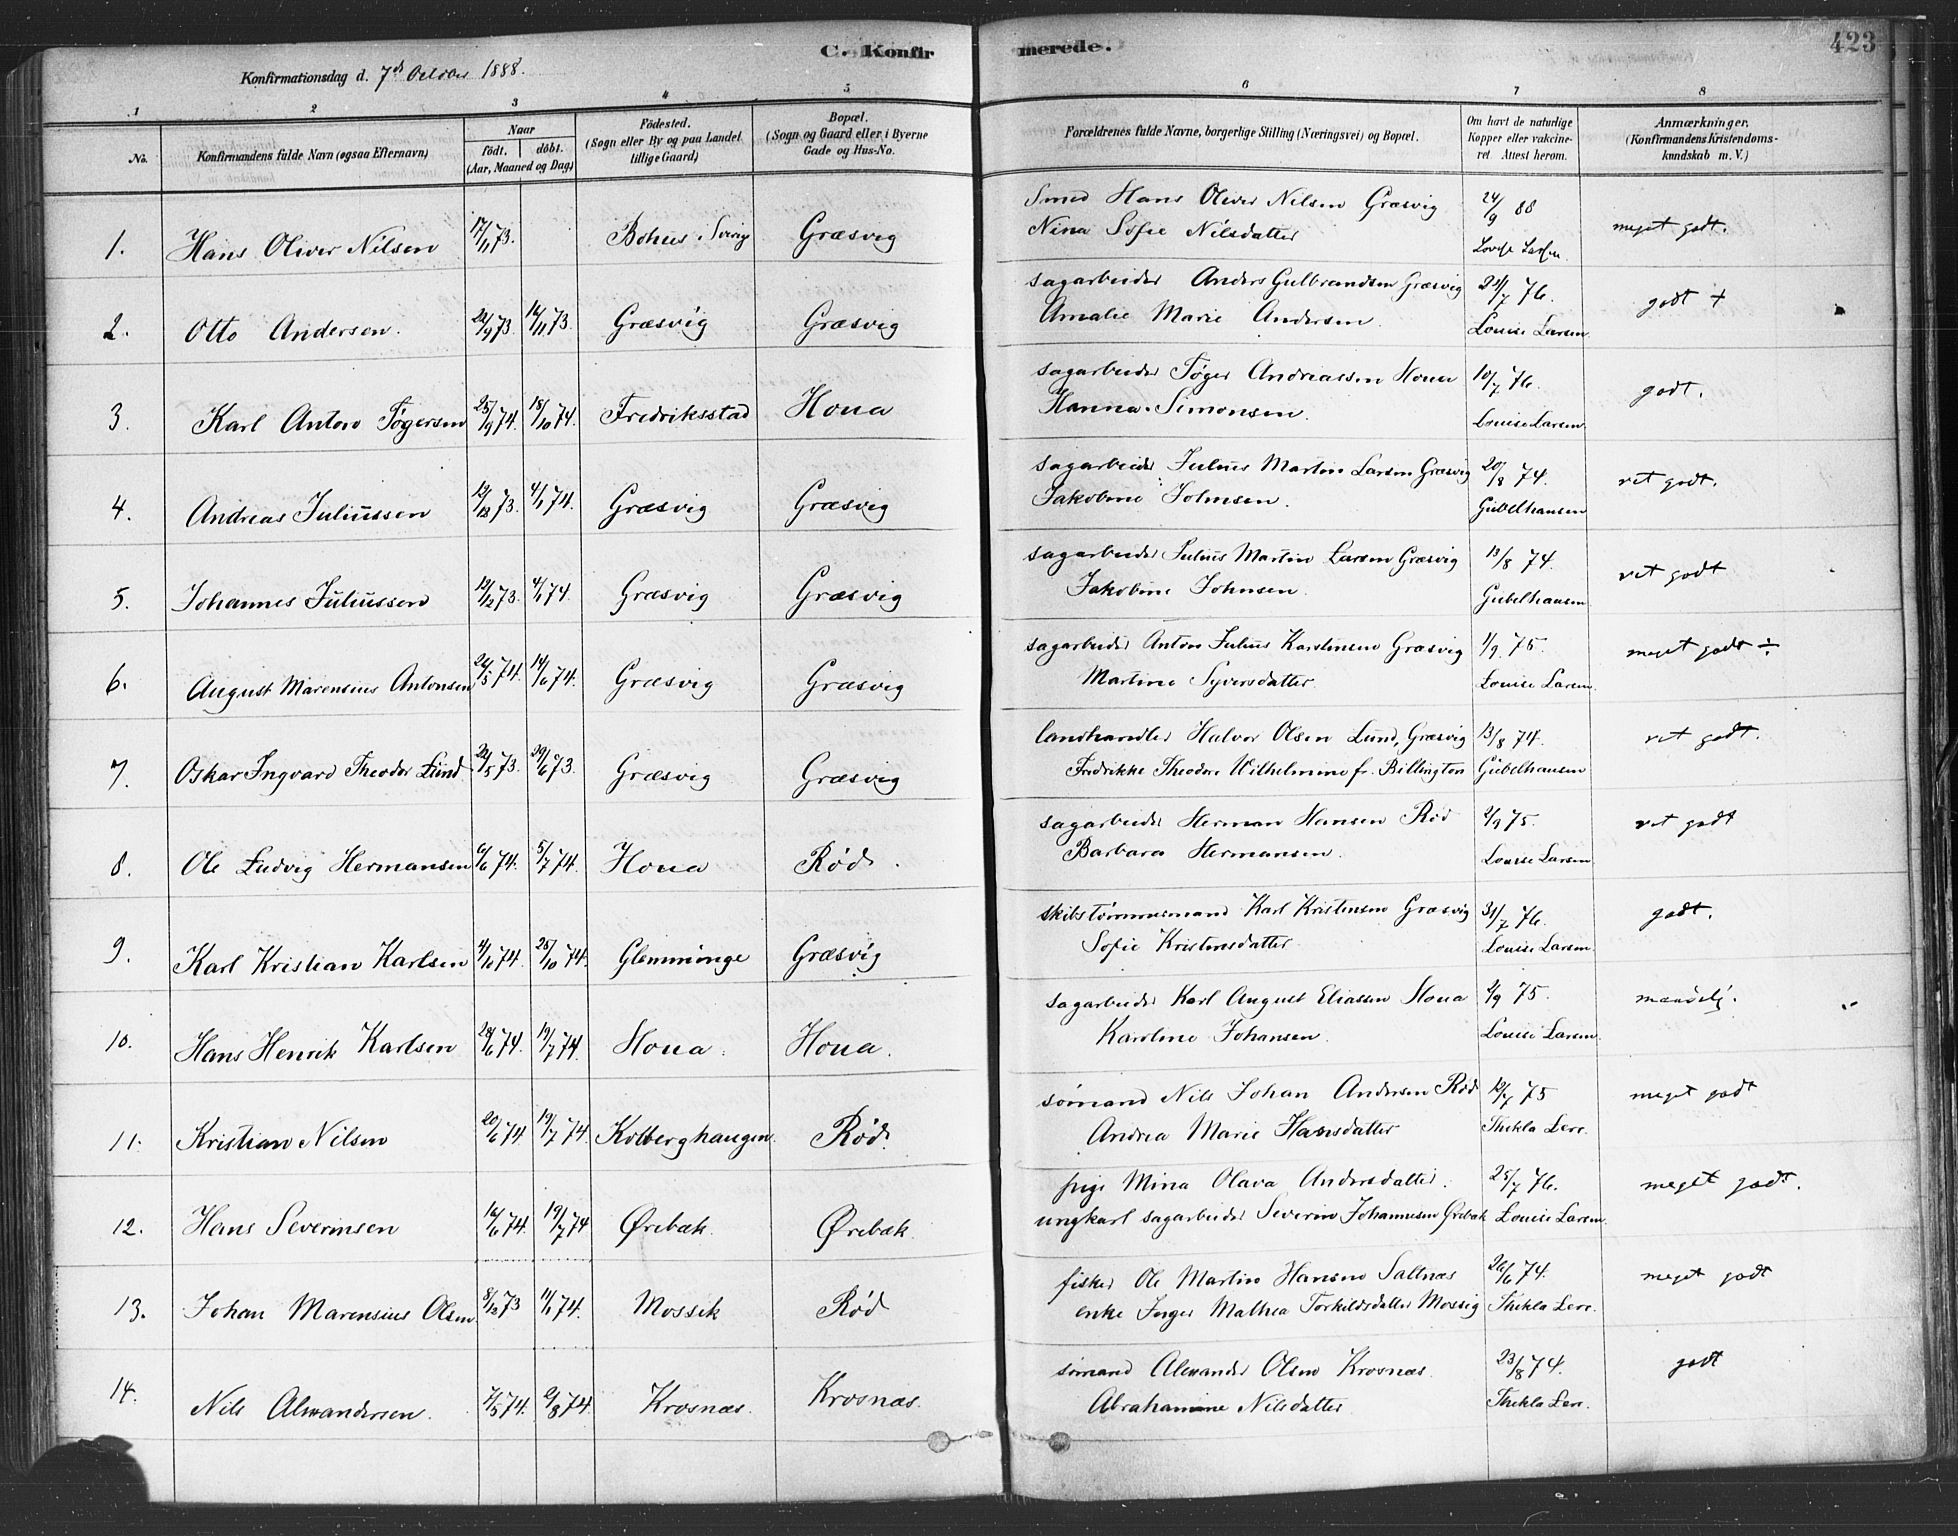 C. Konfirmerede.
423
Konfirmationsdag d. 7de October 1888.
1 2 3 4 5 6 7 8
No.
Konfirmandens fulde Navn (ogsaa Efternavn)
Naar
födt. döbt.
(Aar, Maaned og Dag)
Födested.
(Sogn eller By og paa Landet
tillige Gaard)
Bopæl.
(Sogn og Gaard eller i Byerne
Gade og Hus-No.
Forældrenes fulde Navne, borgerlige Stilling (Næringsvei) og Bopæl.
Om havt de naturlige
Kopper eller vakcine-
ret. Attest herom.
Anmærkninger,
(Konfirmandens Kristendoms-
kundskab m. V.)
Smed Hans Oliver Nilsen Græsvig 24/9 88
1. Hans Oliver Nilsen 17/11 73. Bohus. Sverig Græsvig Nina Sofie Nilsdatter meget godt.
sagarbeider Anders Gulbrandsen Græsvig 23/7 76.
2. Otto Andersen. 22/9 73. 16/11 73. Græsvig Græsvig Amalie Marie Andersen. Louise Larsen godt +
sagarbeider Töger Andreassen Houa 10/7 76.
3. Karl Anton Tögersen 25/9 74. 18/10 74. Fredriksstad Houa Hanna Simonsen. Louise Larsen godt.
sagarbeider Julius Martin Larsen Græsvig 20/8 74.
4. Andreas Juliussen 12/12 73. 4/1 74. Græsvig Græsvig Jakobine Johnsen. Gubelhausen ret godt.
sagarbeider Julius Martin Larsen Græsvig 13/8 74.
5. Johannes Juliussen 12/12 73. 4/1 74. Græsvig Græsvig Jakobine Johnsen. Gubelhausen ret godt
sagarbeider Anton Julius Karstensen Græsvig 1/9 75.
6. August Marensius Antonsen 24/5 74. 14/6 74. Græsvig Græsvig Martine Syversdatter. Louise Larsen. meget godt ÷
landhandler Halvor Olsen Lund, Græsvig 13/8 74.
7. Oskar Ingvard Theodor Lund. 22/5 73. 29/6 73. Græsvig Græsvig Fredrikke Theodore Wilhelmine f. Billington Gubelhausen ret godt.
sagarbeider Herman Hansen Röd 2/9 75.
8. Ole Ludvig Hermansen 6/6 74. 5/7 74. Houa Röd. Barbara Hermansen. Louise Larsen ret godt
skibstömmermand Karl Kristensen Græsvig 31/7 76.
9. Karl Kristian Karlsen 4/10 74. 25/10 74. Glemminge Græsvig Sofie Kristensdatter. Louise Larsen godt.
sagarbeider Karl August Eliassen Houa 2/9 75.
10. Hans Henrik Karlsen 28/6 74. 19/7 74. Houa. Houa. Karoline Johansen. Louise Larsen.
sömand Nils Johan Andersen Röd 12/7 75
11. Kristian Nilsen 20/6 74. 19/7 74. Kolberghaugen. Röd. Andrea Marie Hansdatter Thekla Lere. meget godt
pige Mina Olava Andersdatter. 25/7 76.
12. Hans Severinsen 16/6 74. 19/7 74 Örebæk. Örebæk. ungkarl sagarbeider Severin Johannesen Örebæk Louise Larsen. meget godt.
fisker Ole Martin Hansen Saltnæs 26/6 74.
13. Johan Marensius Olsen 8/12 73 11/1 74. Mossik Röd enke Inger Mathea Torkildsdatter Mossig Thekla Lere. meget godt
sömand Alexander Olsen Krosnæs. 23/8 74.
14. Nils Alexandersen. 7/5 74. 2/8 74. Krosnæs. Krosnæs. Abrahamine Nilsdatter. Thekla Lere. godt